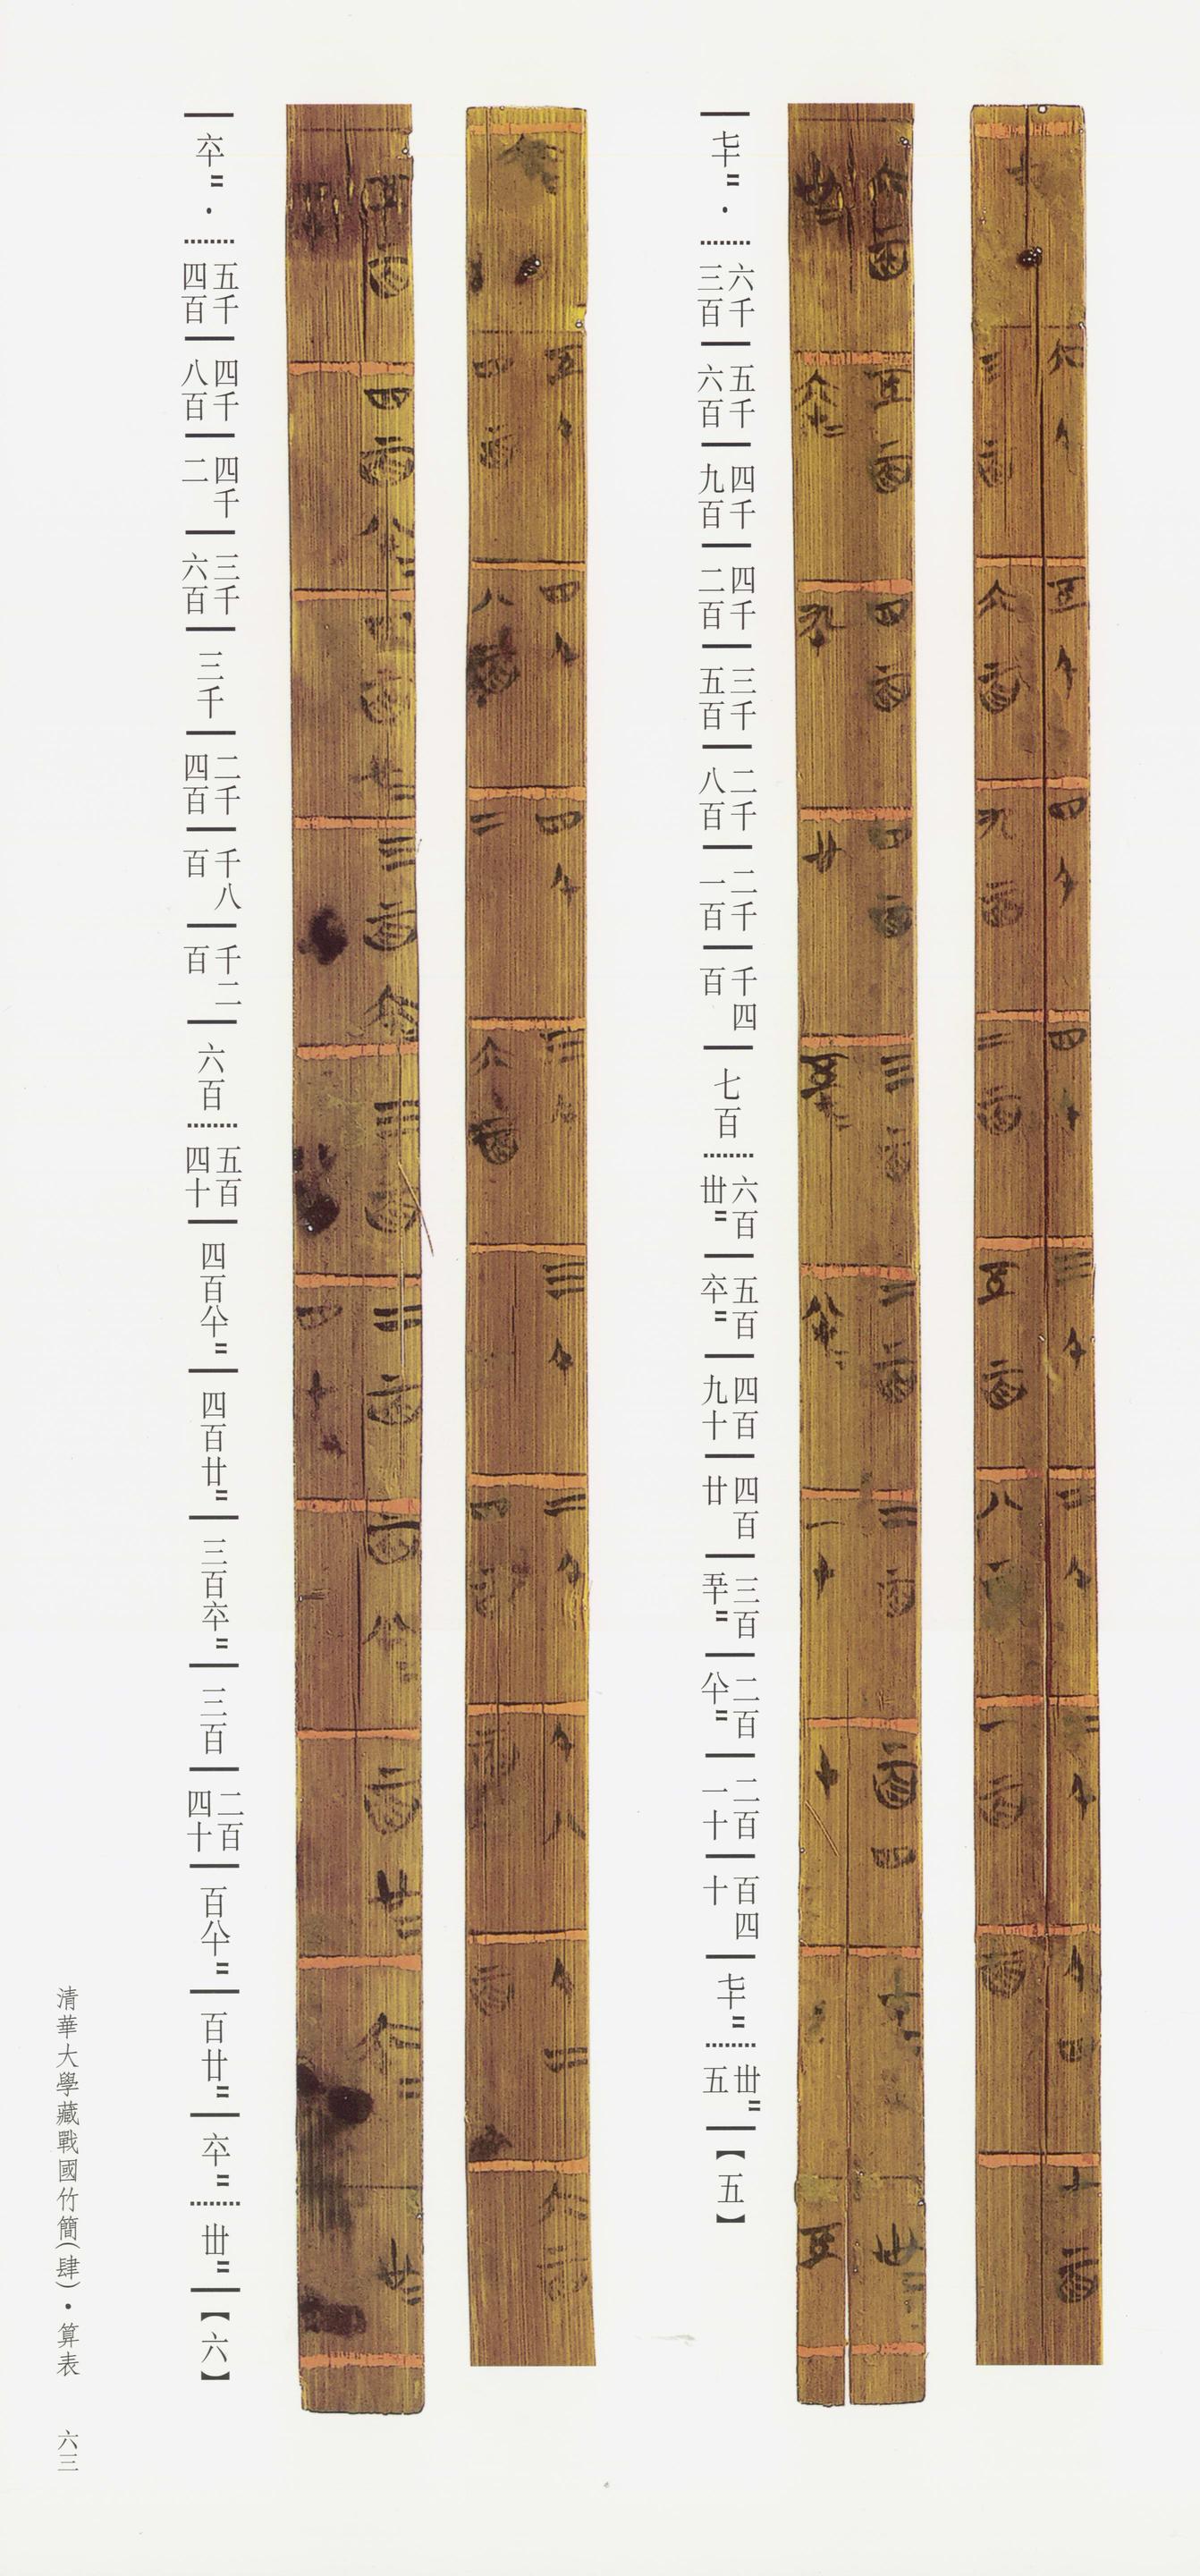 七十＝・六千三百 五千六百 四千九百 四千二百 三千五百 二千八百 二千一百 千四百 七百 六百丗＝ 五百六十＝ 四百九十 四百廿 三百五十＝ 二百八十＝ 二百一十 百四十 七十＝ 丗＝五【五】
六十＝・五千四百 四千八百 四千二 三千六百 三千 二千四百 千八百 千二百 六百 五百四十 四百八十＝ 四百廿＝ 三百六十＝ 三百 二百四十 百八十＝ 百廿＝ 六十＝ 丗＝【六】
清華大學藏戰國竹簡（肆）・算表 六三